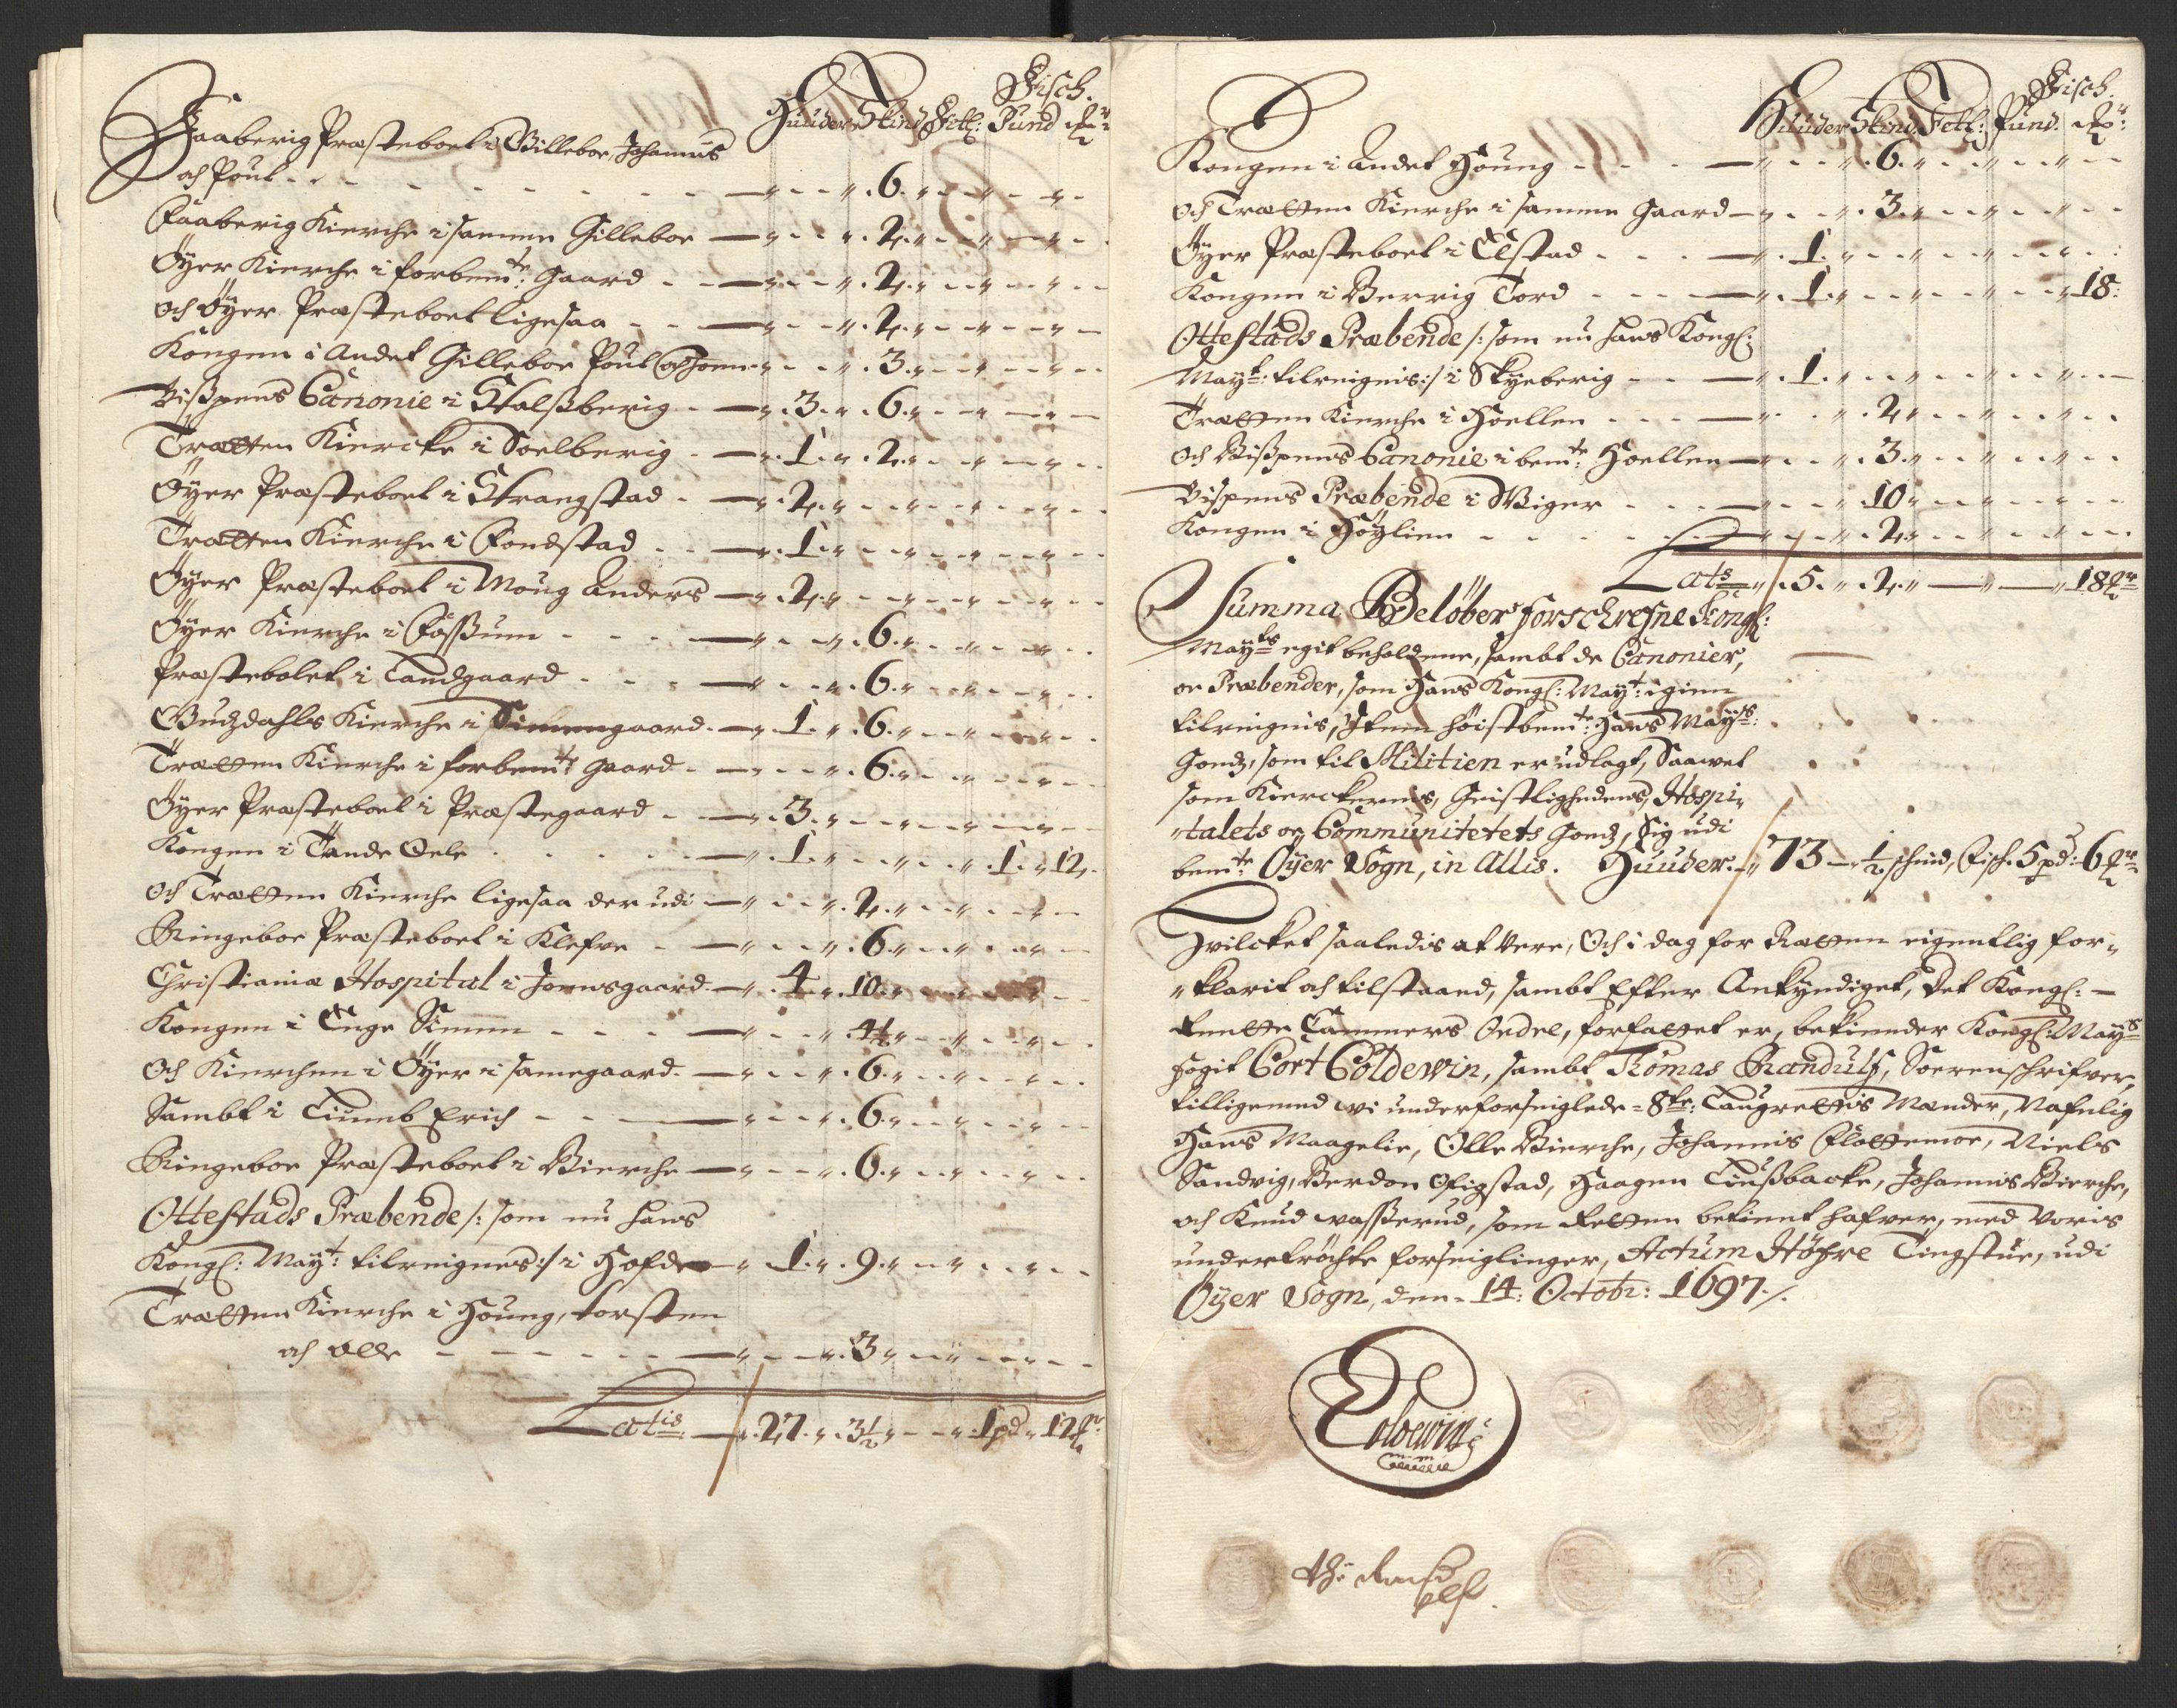 Fisch.
Huuder Skind Fetl: Pund Mr:
Faaberig Præsteboel i Gilleboe, Johannis
och Poul - - - „ - „ . 6 . „ - „ - „ -
Faaberig Kierche i samme Gilleboe — „ - „ . 2 . „ - „ - „ -
Öyer Kierche i forbemte: Gaard - - „ - „ . 2 . „ - „ - „ -
och Öyer Præsteboel ligesaa - - „ - „ . 2 . „ - „ - „ -
Kongen i Andet Gilleboe Poul och Joen „ - „ . 3 . „ - „ - „ -
Bißpens Canonie i Stalßberig - — „ . 3 . „ . 6 . „ - „ - „ -
Træetten Kiercke i Soelberig - — „ . 1 . „ . 2 . „ - „ - „ -
Öyer Præsteboel i Skrangstad - — „ . 2 . „ - „ - „ - „ -
Trætten Kierche i Fondstad - - — „ . 1 . „ - „ - „ - „ -
Öyer Præsteboel i Moug Anders — „ . 2 . „ - „ - „ - „ -
Öyer Kierche i Foßum - - - — „ - „ . 6 . „ - „ - „ -
Præstebolet i Landgaard - - - — „ - „ . 6 . „ - „ - „ -
Gudzdahls Kierche i Simengaard - — „ . 1 . „ . 6 . „ - „ - „ -
Trætten Kierche i forbemte Gaard - — „ - „ . 6 . „ - „ - „ -
Öyer Præsteboel i Præstegaard - — „ . 3 . „ - „ - „ - „ -
Kongen i Tande Oele - - - — „ . 1 . „ - „ - „ . 1 . „ 12 .
och Trætten Kierche ligesaa der udi — „ - „ . 2 . „ - „ - „ -
Ringeboe Præsteboel i Klefve - — „ - „ . 6 . „ - „ - „ -
Christiania Hospital i Joensgaard - — „ . 4 . „ . 10 . „ - „ - „ -
Kongen i Enge Simen - - - — „ - „ 4½ „ - „ - „ -
och Kierchen i Öyer i samegaard - — „ - „ . 6 . „ - „ - „ -
Sambt i Tiumb Erich - - — „ - „ . 6 . „ - „ - „ -
Ringeboe Præsteboel i Bierche — „ - „ . 6 . „ - „ - „ -
Ottestads Præbende /: som nu hans
Kongl: Mayt: tilreignes :/ i Hofde — „ . 1 . „ . 9 . „ - „ - „ -
Trætten Kierche i Houng, Torsten
och Olle - - - — „ - „ . 3 „ - „ - „ -
Latis — „ . 27 . „ . 3½ „ - „ . 1pd „ 12 Mr:
Fisch.
Huuder Skind Fetl: Pund. Mr:
Kongen i Andet Houng - - - — „ - „ . 6 . „ - „ - „ -
och Trætten Kierche i samme Gaard — „ - „ . 3 . „ - „ - „ -
Öyer Præsteboel i Elstad - - - — „ . 1 . „ - „ - „ - „ -
Kongen i Berrig Tord - - - — „ . 1 . „ - „ - „ - „ 18 :
Ottestads Præbende /: som nu hans Kongl:
Mayt: tilreignis :/ i Skyeberig - - — „ . 1 . „ - „ - „ - „ -
Trætten Kierche i Hoellen - - - — „ - „ . 2 „ - „ - „ -
och Bißpens Canonie i bemte: Hoellen — „ - „ . 3 . „ - „ - „ -
Bispens Præbende i Wiger - - - — „ - „ 10 „ - „ - „ -
Kongen i Höylien - - - — „ - „ . 2 . „ - „ - „ -
Lats „ . 5 . „ . 2 . „ — „ — „ 18 Mr
Summa Beløber forschrefne Kongl:
Mayts egit beholdene, sambt de Canonier,
oc Præbender, som Hans Kongl: Mayt: igien
tilreignis, Item høistbemte: Hans Mayts:
Godz, som til Militien er udlagt, Saavel
som Kierckernis, Geistlighedens, Hospi„
„talets og Communitetets Godz, Sig udi
bemte: Öyer Sogn, in Allis. Huuder — „ 73 — „ ½ schind, Fisch 5 pd: 6 Mr
Hvilcket saaledis at Vere, Och i dag for Rætten eigentlig for„
„klarit och tilstaaed, sambt Efter Ankyndiget, Det Kongl: —
Rentte Cammers Ordre, forfattet er, bekiender Kongl: Mayts
Fogit Cort Coldewin, sambt Tomas Randulf, Soerenschrifver,
tilligemed wi underforseiglede = 8te: Laugrettis Mænder, Nafnlig
Hans Maagelie, Olle Bierche, Johannis Flottemoe, Niels
Sandvig, Berdon Ofigstad, Haagen Tiußbacke, Johannis Bierche,
och Knud waßerud, som Retten betient hafver, med Voris
undertröchte forseiglinger, Actum Høfre Tingstue, udi
Öyer Sogn, den - 14: Octobr: 1697 ./.
Coldewin
Th: Randulf